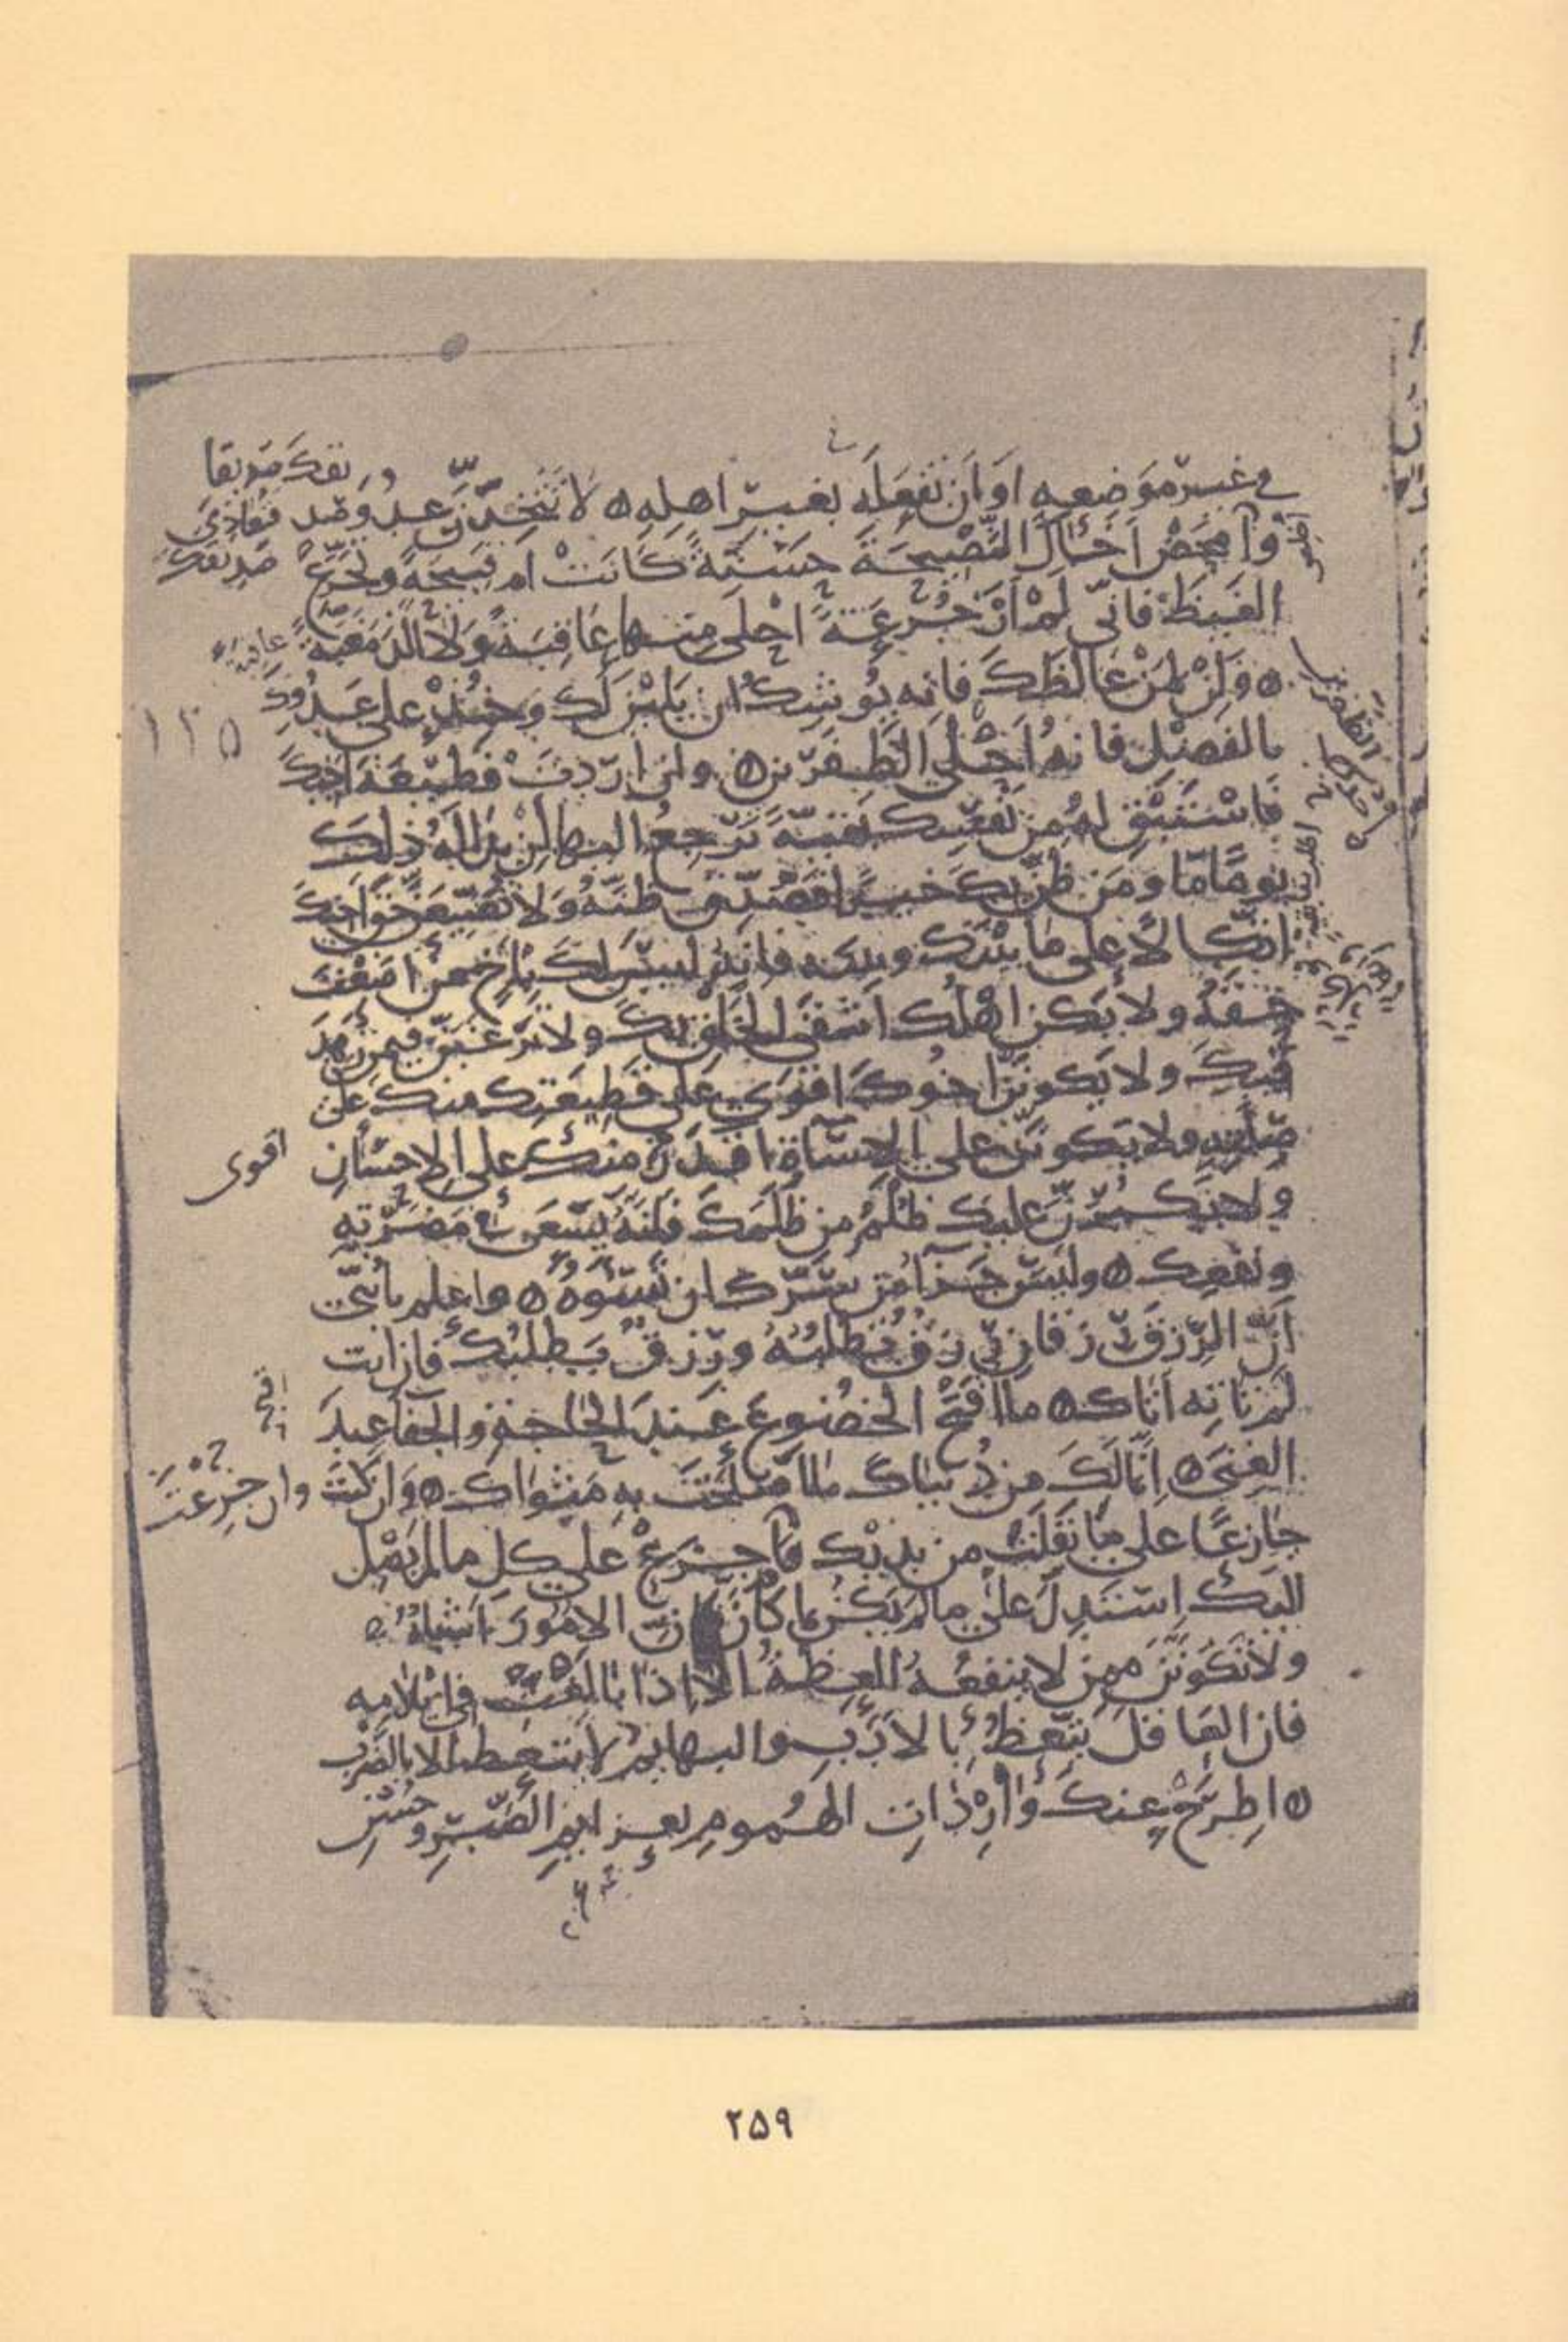 في غير موضعه او ان تفعله بغير اهله ه لا تتخذن عدو صديقك صديقا
فتعادي صديقك
وامحض اخاك النصيحة حسنة كانت ام قبيحة وتجرع
الغيظ فاني لم ار جرعة احلى منها عاقبة ولا الذ مغبة
ه ولن لمن غالظك فانه يوشك ان يلين لك وخذ على عدوك
بالفضل فانه احلى الظفرين ه وان اردت قطيعة اخيك
فاستبق له من نفسك بقية ترجع اليها ان بدا له ذلك
يوما ما ومن ظن بك خيرا فصدق ظنه ولا تضيعن حق اخيك
اتكالا على ما بينك وبينه فانه ليس لك باخ من اضعت
حقه ولا يكن اهلك اشقى الخلق بك ولا ترغبن فيمن زهد
فيك ولا يكونن اخوك اقوى على قطيعتك منك على
صلته ولا يكونن على الاساءة اقدر منك على الاحسان
اقوى
ولا يكبرن عليك ظلم من ظلمك فانه يسعى في مضرته
ونفعك ه وليس جزآء من سرك ان تسوءه ه واعلم يا بني
ان الرزق رزقان رزق تطلبه ورزق يطلبك فان انت
لم تاته اتاك ه ما اقبح الخضوع عند الحاجة والجفا عند
الغنى ه انما لك من دنياك ما اصلحت به مثواك ه وان كنت
وان جزعت
جازعا على ما تفلت من يديك فاجزع على كل ما لم يصل
اليك استدل على ما لم يكن بما كان فان الامور اشباه ه
ولا تكونن ممن لا ينفعه العظة الا اذا بالغت في ايلامه
فان العاقل يتعظ بالادب والبهايم لا يتعظ الا بالضرب
ه اطرح عنك واردات الهموم بعزايم الصبر وحسن
١٢٥
٢٥٩